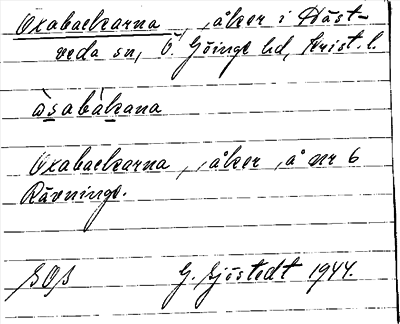 Oxabackarna, åker i Häst-
veda sn, Ö. Göinge hd, Krist. l.
àsabàkana
Oxabackarna, åker, å nr 6
Rävninge.
G. Sjöstedt 1944.